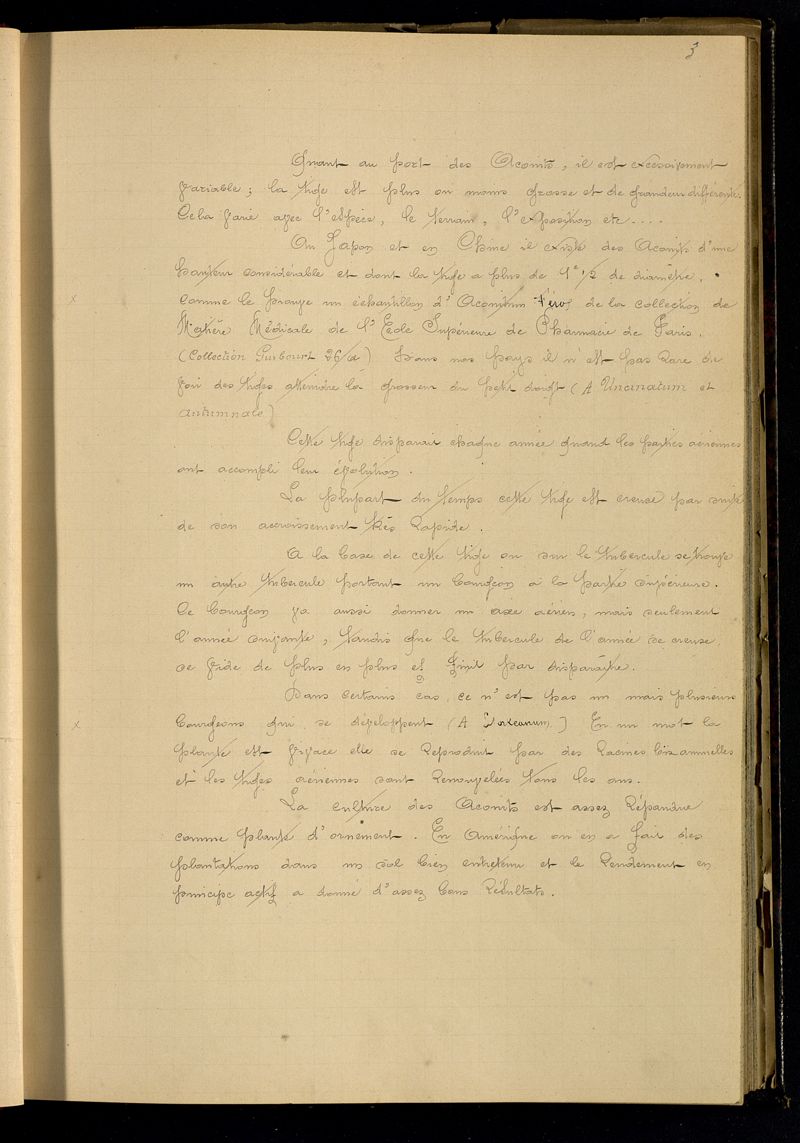 3
Quant au port des Aconits, il est excessivement
variable ; la tige est plus ou moins grosse et de grandeur différente.
Cela varie avec l'espèce, le terrain, l'exposition etc....
Au Japon et en Chine il existe des Aconits d'une
hauteur considérable et dont la tige a plus de 1c 1/2 de diamètre,
x comme le prouve un échantillon d'Aconitum férox de la collection de
Matière Médicale de l'Ecole Supérieure de Pharmacie de Paris.
(Collection Guibourt 26/a) Dans nos pays il n'est pas rare de
voir des tiges atteindre la grosseur du petit doigt (A Uncinatum et
autumnale)
Cette tige disparait chaque année quand les parties aériennes
ont accompli leur évolution.
La plupart du temps cette tige est creuse par suite
de son accroissement très rapide.
A la base de cette tige ou sur le tubercule se trouve
un autre tubercule portant un bourgeon à la partie supérieure.
Ce bourgeon va aussi donner un axe aérien, mais seulement
l'année suivante, tandis que le tubercule de l'année se creuse,
se vide de plus en plus et finit par disparaître.
Dans certains cas, ce n'est pas un mais plusieurs
x bourgeons qui se développent (A Storkeanum) En un mot la
plante est vivace elle se reproduit par des racines bisannuelles
et les tiges aériennes sont renouvelées tous les ans.
La culture des Aconits est assez répandue
comme plante d'ornement. En Amérique on en a fait des
plantations dans un sol bien entretenu et le rendement en
principe actif a donné d'assez bons résultats.